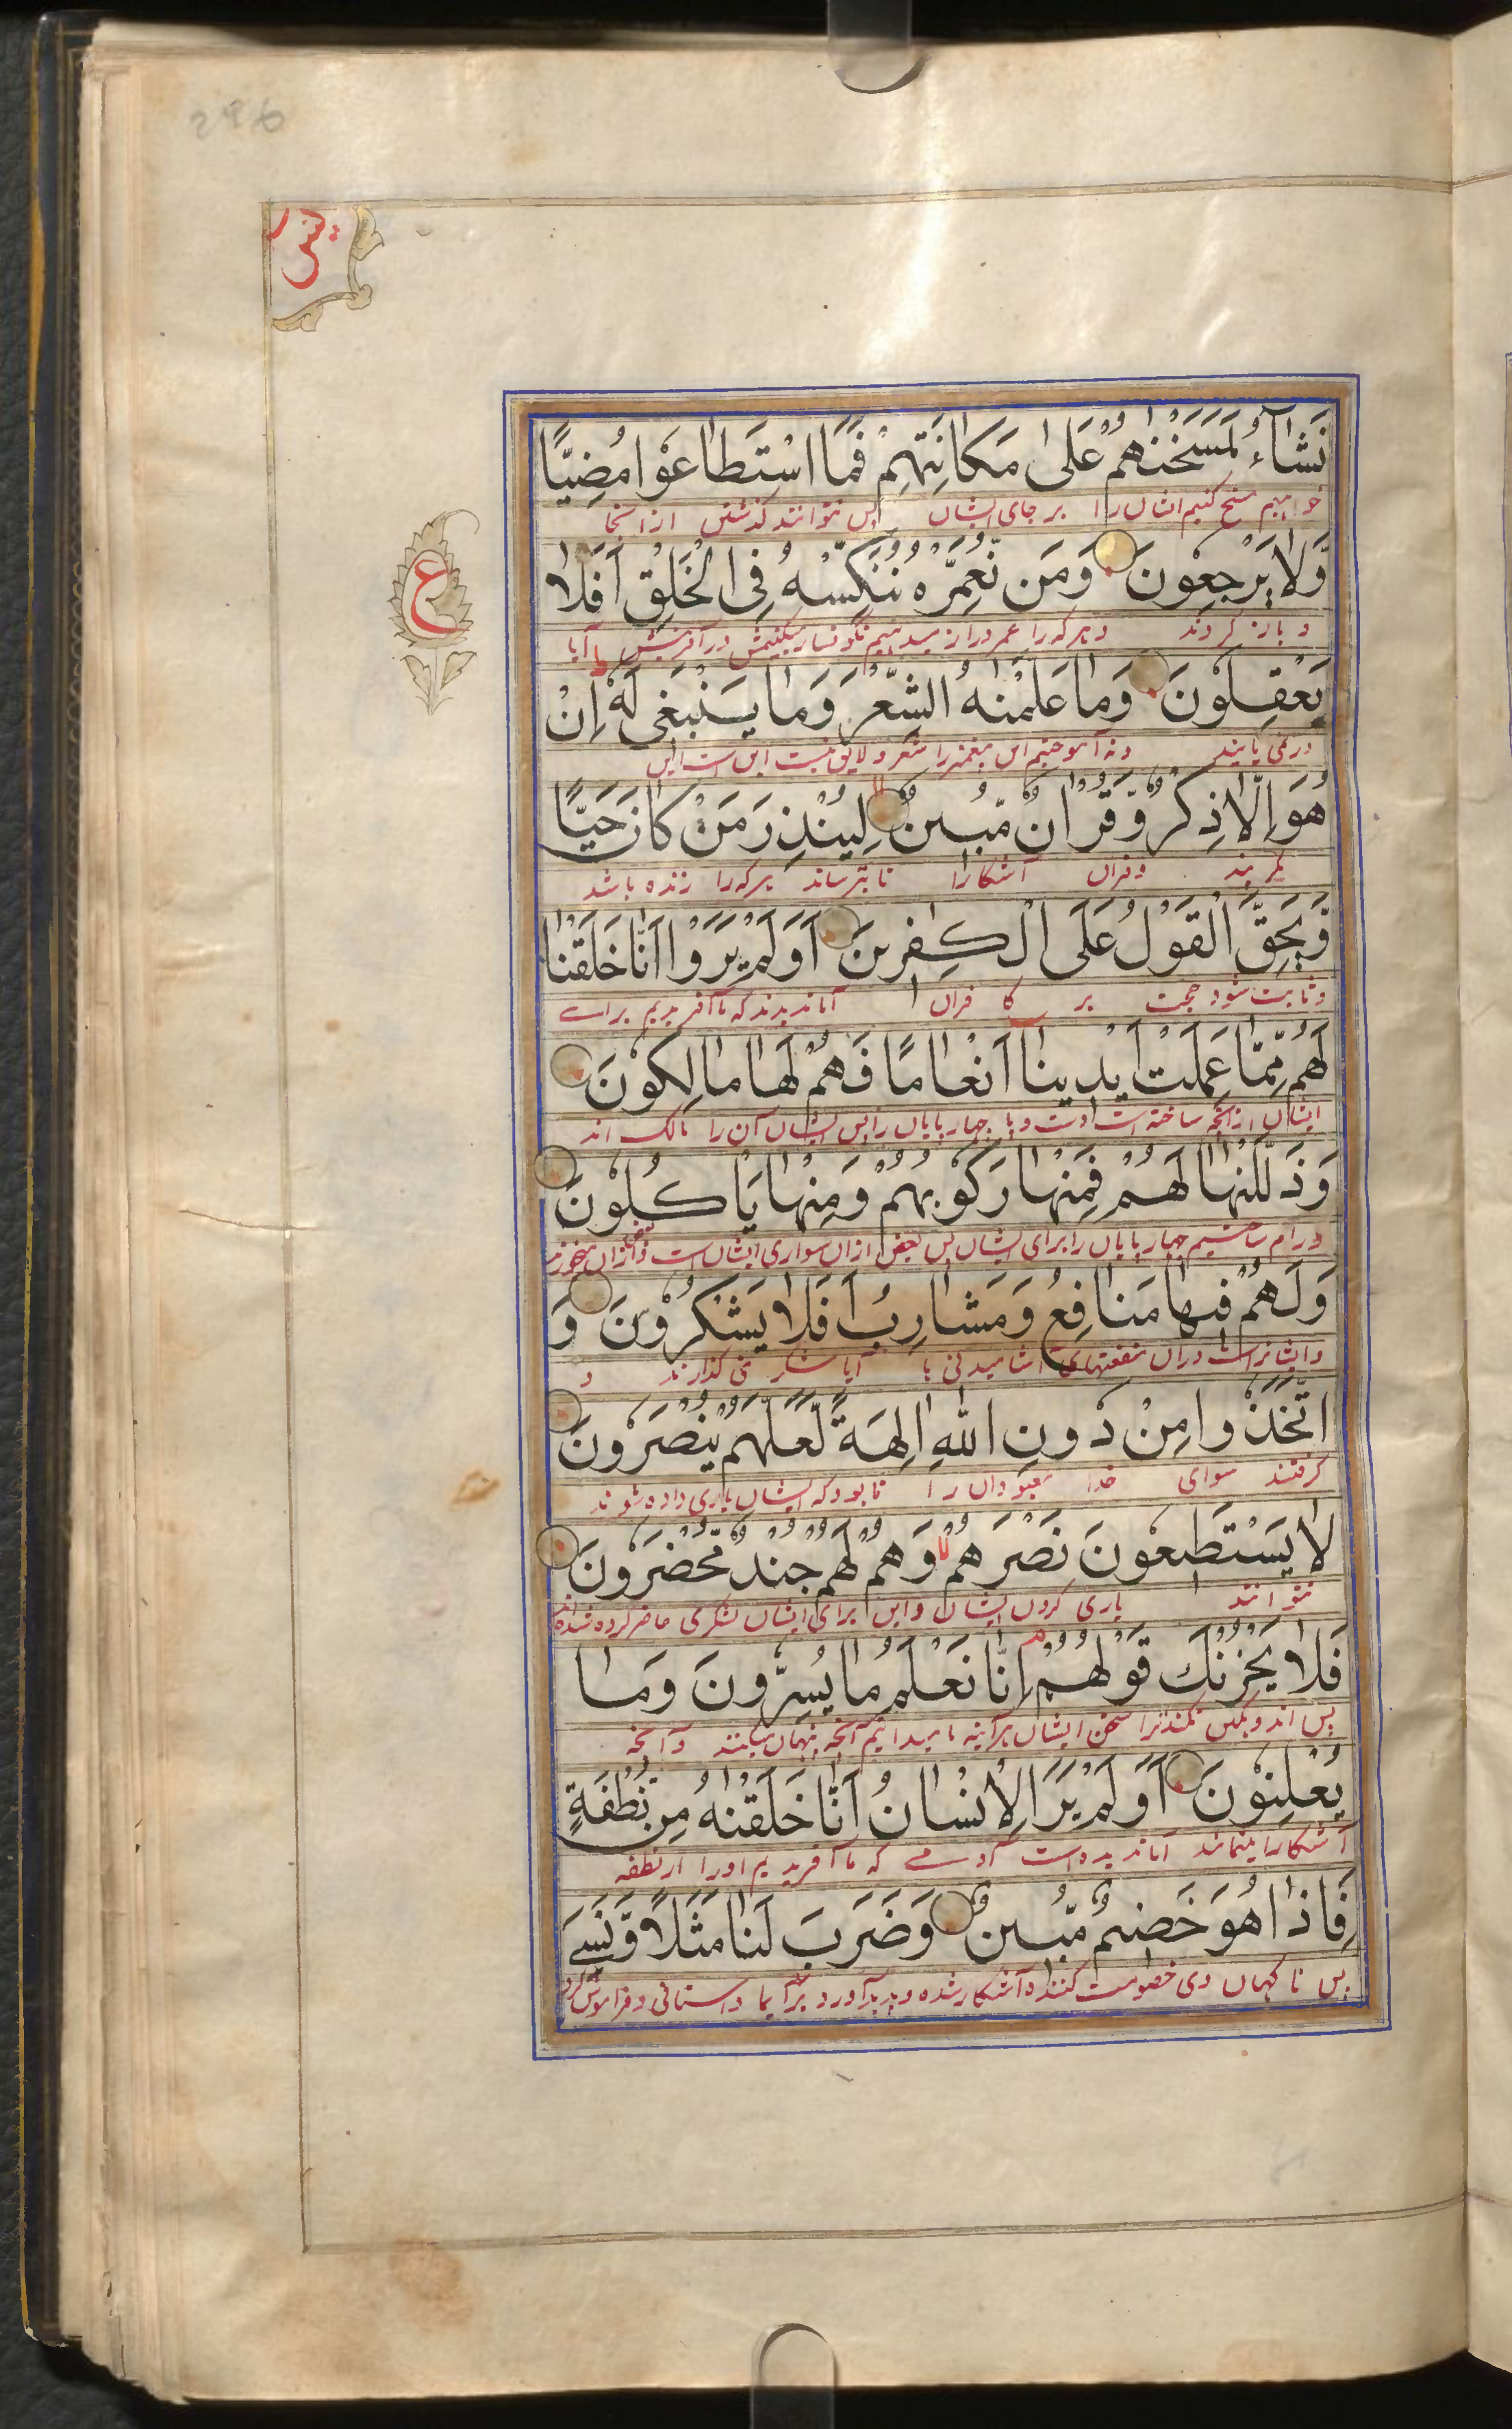 296
یٰسٓ
نَشَآءُ لَمَسَخْنٰهُمْ عَلٰى مَكَانَتِهِمْ فَمَا اسْتَطَاعُوْا مُضِيًّا
خواهیم مسخ کنیم ایشان را بر جای ایشان پس نتوانند گذشتن از آنجا
وَّلَا يَرْجِعُوْنَ وَمَنْ نُّعَمِّرْهُ نُنَكِّسْهُ فِى الْخَلْقِ اَفَلَا
و باز گردند و هر که را عمر دراز میدهیم نگونسار میکنیمش در آفرینش آیا
ع
يَعْقِلُوْنَ وَمَا عَلَّمْنٰهُ الشِّعْرَ وَمَا يَنْبَغِىْ لَهٗ اِنْ
در نمی یابند و نه آموختیم این پیغمبر را شعر و لایق نیست این است این
هُوَ اِلَّا ذِكْرٌ وَّقُرْاٰنٌ مُّبِيْنٌ لِّيُنْذِرَ مَنْ كَانَ حَيًّا
مگر پند و قران آشکارا تا بترساند هر که را زنده باشد
وَّيَحِقَّ الْقَوْلُ عَلَى الْكٰفِرِيْنَ اَوَلَمْ يَرَوْا اَنَّا خَلَقْنَا
و ثابت شود حجت بر کا فران آیا ندیدند که ما آفریدیم برای
لَهُمْ مِّمَّا عَمِلَتْ اَيْدِيْنَا اَنْعَامًا فَهُمْ لَهَا مَالِكُوْنَ
ایشان از آنچه ساخته است چهار پایان را پس ایشان آن را مالک اند
وَذَلَّلْنٰهَا لَهُمْ فَمِنْهَا رَكُوْبُهُمْ وَمِنْهَا يَاْكُلُوْنَ
و رام ساختیم چهار پایان را برای ایشان پس بعض ازان سواری ایشان است و بعض ازان میخورند
وَلَهُمْ فِيْهَا مَنَافِعُ وَمَشَارِبُ اَفَلَا يَشْكُرُوْنَ وَ
و ایشانراست دران منفعتهای آشامیدنی ها آیا شکر نمی گذارند و
اتَّخَذُوْا مِنْ دُوْنِ اللّٰهِ اٰلِهَةً لَّعَلَّهُمْ يُنْصَرُوْنَ
گرفتند سوای خدا معبودان را تا بود که ایشان یاری داده شوند
لَا يَسْتَطِيْعُوْنَ نَصْرَهُمْ وَهُمْ لَهُمْ جُنْدٌ مُّحْضَرُوْنَ
نتوانند یاری کردن ایشان و این برای ایشان لشکری حاضر کرده شده اند
فَلَا يَحْزُنْكَ قَوْلُهُمْ اِنَّا نَعْلَمُ مَا يُسِرُّوْنَ وَمَا
پس اندوهگین نکند ترا سخن ایشان هر آینه ما میدانیم آنچه پنهان میکنند و آنچه
يُعْلِنُوْنَ اَوَلَمْ يَرَ الْاِنْسَانُ اَنَّا خَلَقْنٰهُ مِنْ نُّطْفَةٍ
آشکارا مینمایند آیا ندیده است آدمے که ما آفریدیم او را از نطفه
فَاِذَا هُوَ خَصِيْمٌ مُّبِيْنٌ وَضَرَبَ لَنَا مَثَلًا وَّنَسِىَ
پس ناگهان وی خصومت کننده آشکار شده و پدید آورد برای ما داستانی و فراموش کرد